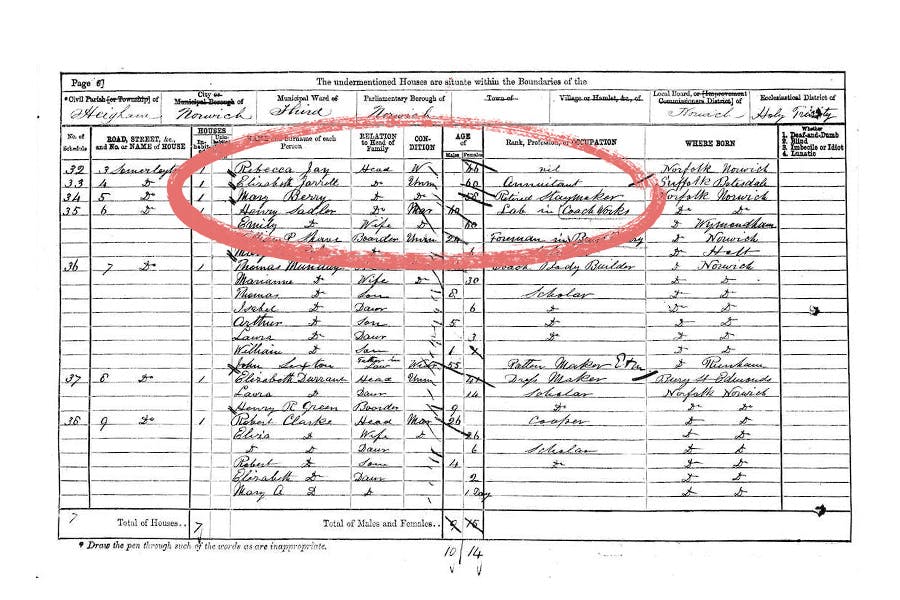 Page 6]
The undermentioned Houses are situate within the Boundaries of the
*Civil Parish [or Township] of City or Municipal Borough of Municipal Ward of Parliamentary Borough of Town of Village or Hamlet, &c., of Local Board, or [Improvement Commissioners District] of Ecclesiastical District of
Heigham Norwich Third Norwich Norwich Holy Trinity
No. of Schedule ROAD, STREET, &c., and No. or NAME of HOUSE HOUSES NAME and Surname of each Person RELATION to Head of Family CONDITION AGE of Males Females Rank, Profession, or OCCUPATION WHERE BORN Whether 1. Deaf-and-Dumb 2. Blind 3. Imbecile or Idiot 4. Lunatic
32 3 1 Rebecca Jay Head W nil Norfolk Norwich
33 4 Do 1 Elizabeth Jarrett Do Unm 60 Annuitant Suffolk Botesdale
34 5 Do 1 Mary Berry Do Retired Staymaker Norfolk Norwich
35 6 Do 1 Henry Sadler Do Mar Lab in Coach Works Do Do
Emily Do Wife Do 60 Do Wymondham
Boarder Unm 24 Foreman in Do Norwich
Do Holt
36 7 Do 1 Thomas Coach Body Builder Do Norwich
Marianne Do Wife Do 30 Do Do
Thomas Do Son 8 Scholar Do Do
Isabel Do Daur 6 Do Do Do
Arthur Do Son 5 Do Do Do
Laura Do Daur 3 Do Do Do
William Do Son 1 Do Do
John Sexton Father in Law 55 Patten Maker Do
37 8 Do 1 Elizabeth Durrant Head Unm Dress Maker Bury St Edmunds
Laura Do Daur 14 Scholar Norfolk Norwich
Henry R Green Boarder 9 Do Do Do
38 9 Do 1 Robert Clarke Head Mar 26 Cooper Do Do
Elvia Do Wife Do 26 Do Do
Do Do Daur 6 Scholar Do Do
Robert Do Son 4 Do Do Do
Elizabeth Do Daur 2 Do Do
Mary A Do Do 1 Day Do Do
7 Total of Houses.. 7 Total of Males and Females.. 9 15
* Draw the pen through such of the words as are inappropriate.
10 14